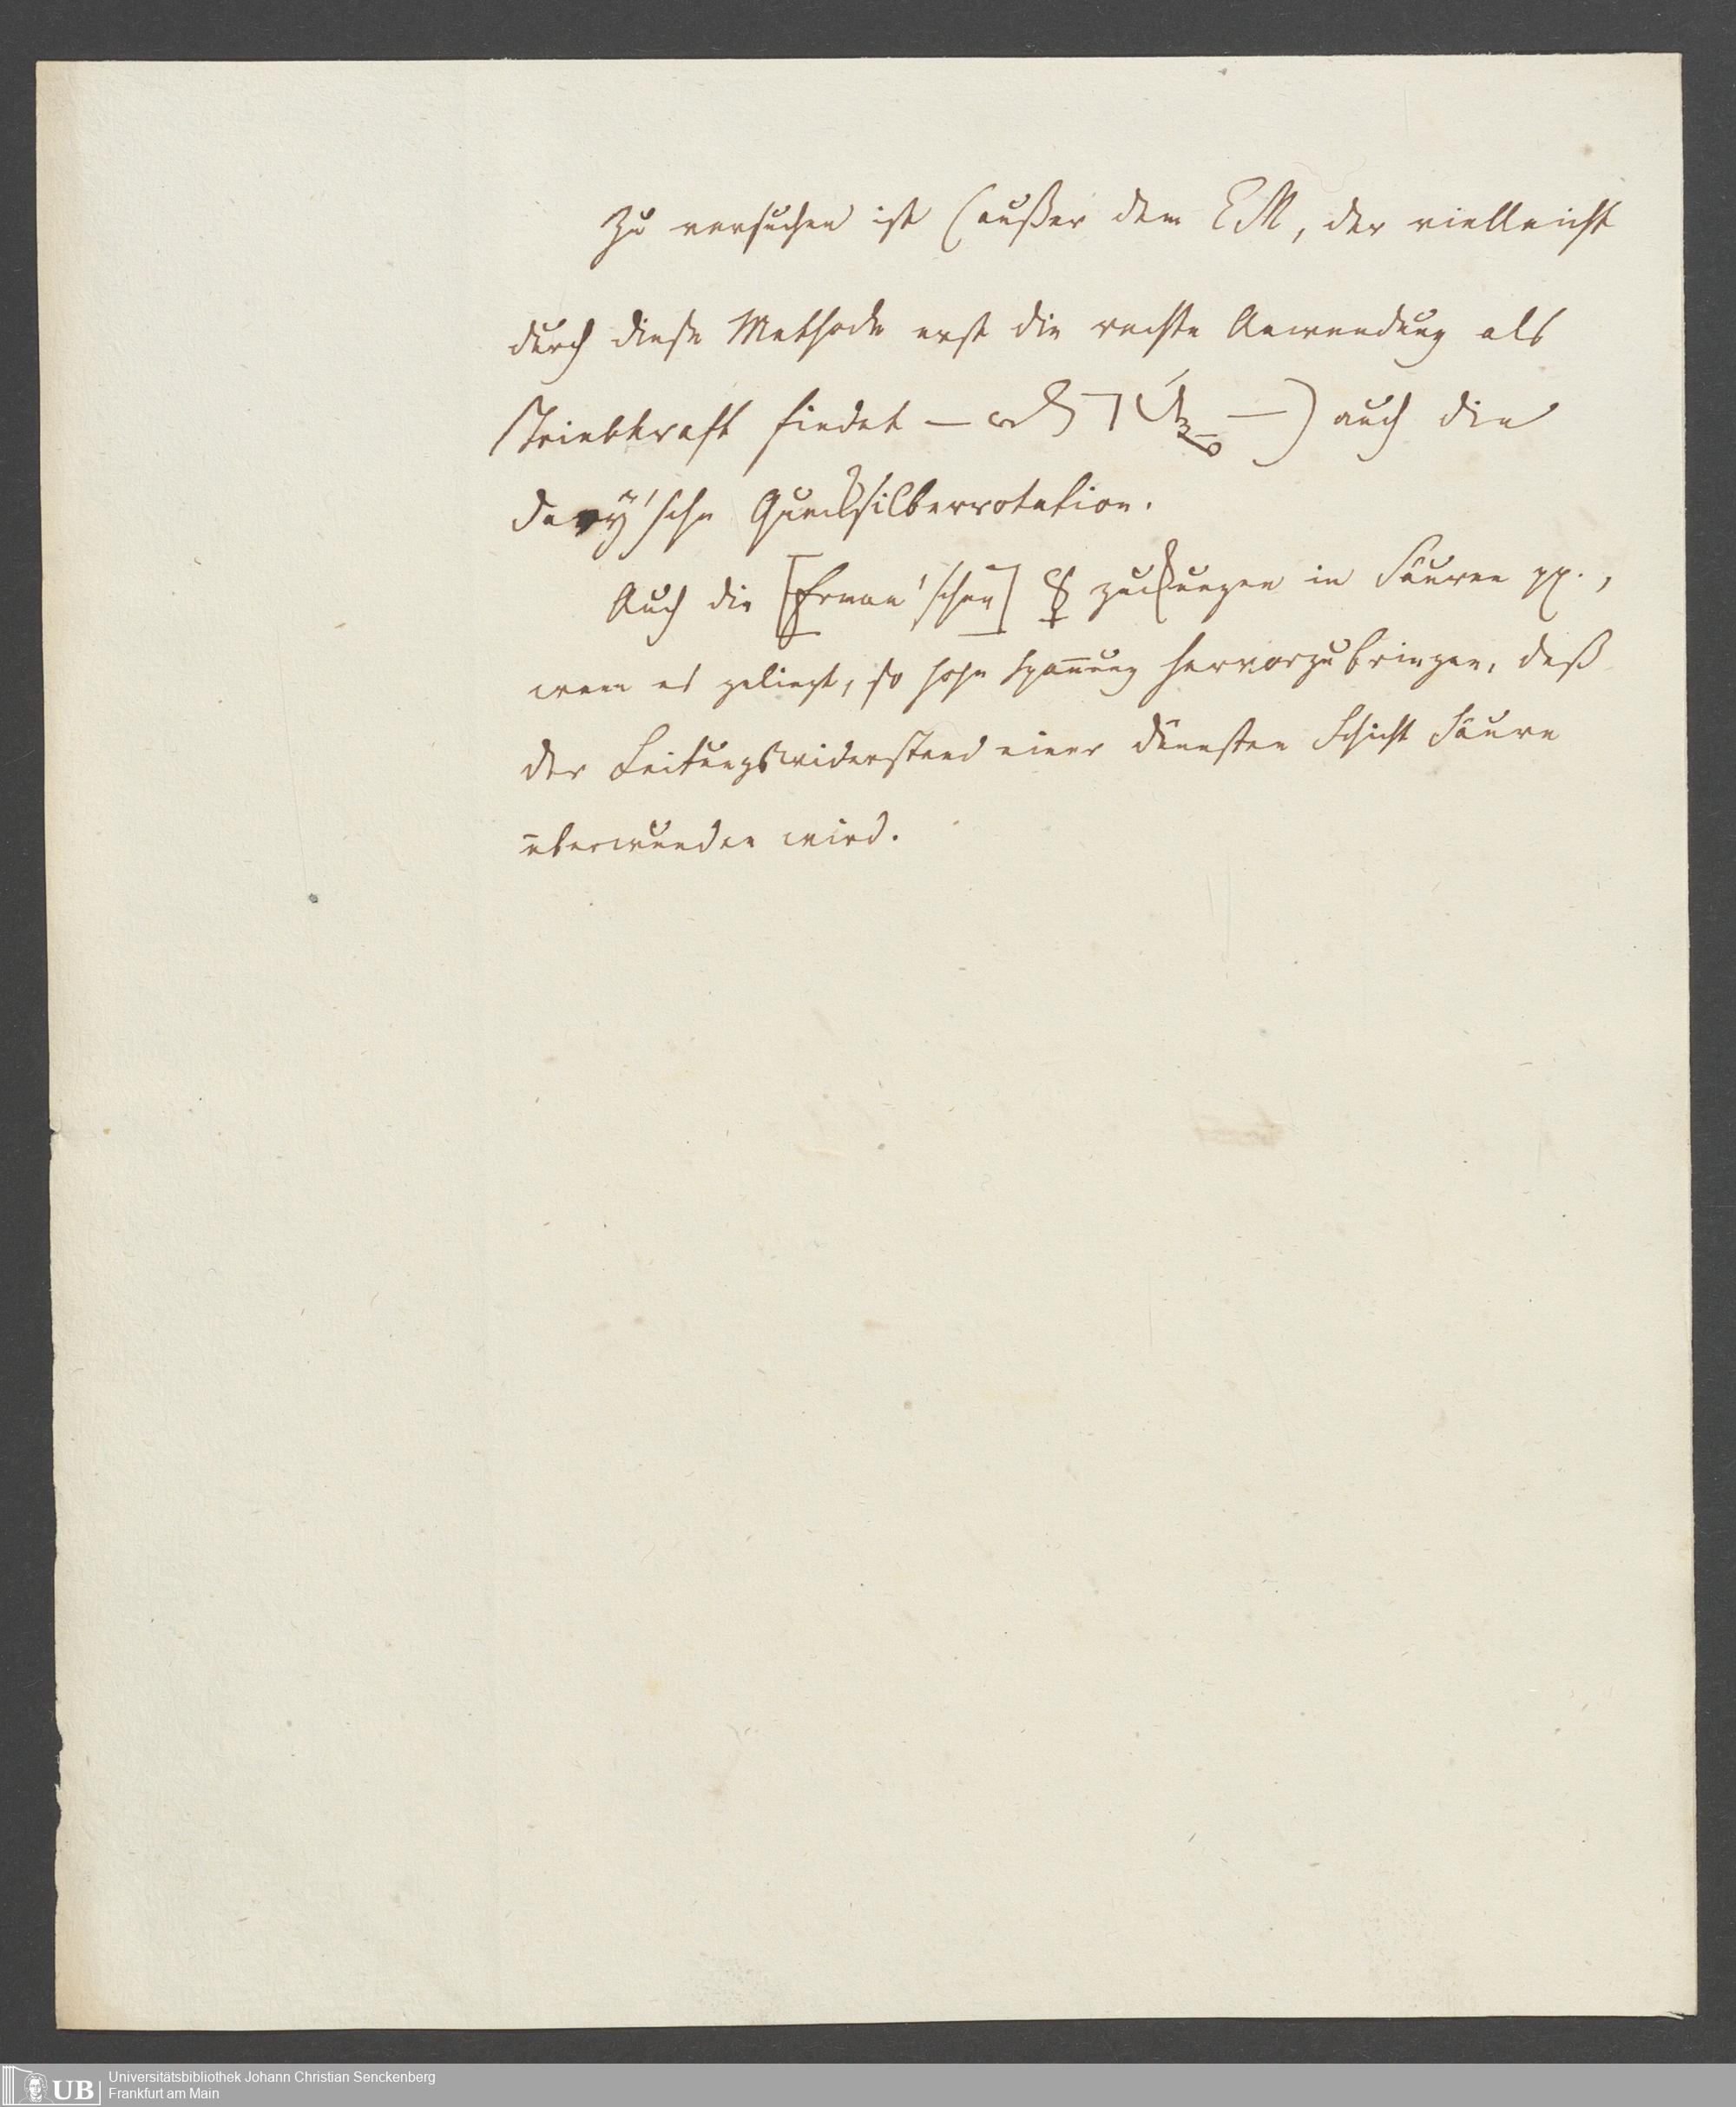 Zu versuchen ist (außer dem EM, der vielleicht
durch diese Methode erst die rechte Anwendung als
Triebkraft findet — —) auch die
Davy'sche Quecksilberrotation.
Auch die [Erman'schen] ☿ zuckungen in Säuren pp.,
wenn es gelingt, so hohe Span̄ung hervorzubringen, daß
der Leitungswiderstand einer dünnsten Schicht Säure
überwunden wird.
UB
Universitätsbibliothek Johann Christian Senckenberg
Frankfurt am Main